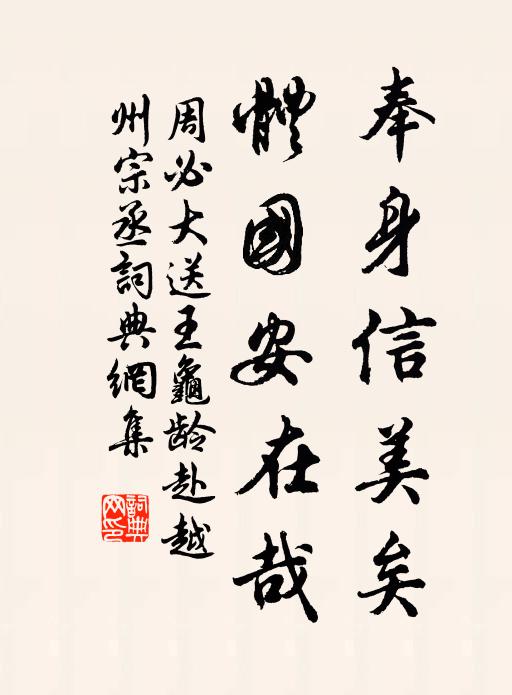 奉身信美矣
體國安在哉
周必大送王龜齡赴越
州宗丞詞典網集
詞典
网印